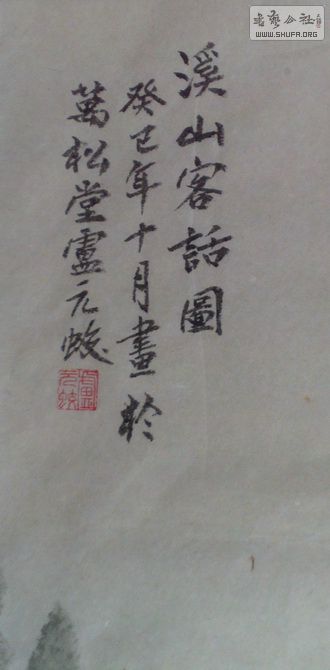 溪山客話圖
癸巳年十月畫於
萬松堂盧元蛟
書藝公社
WWW.SHUFA.ORG